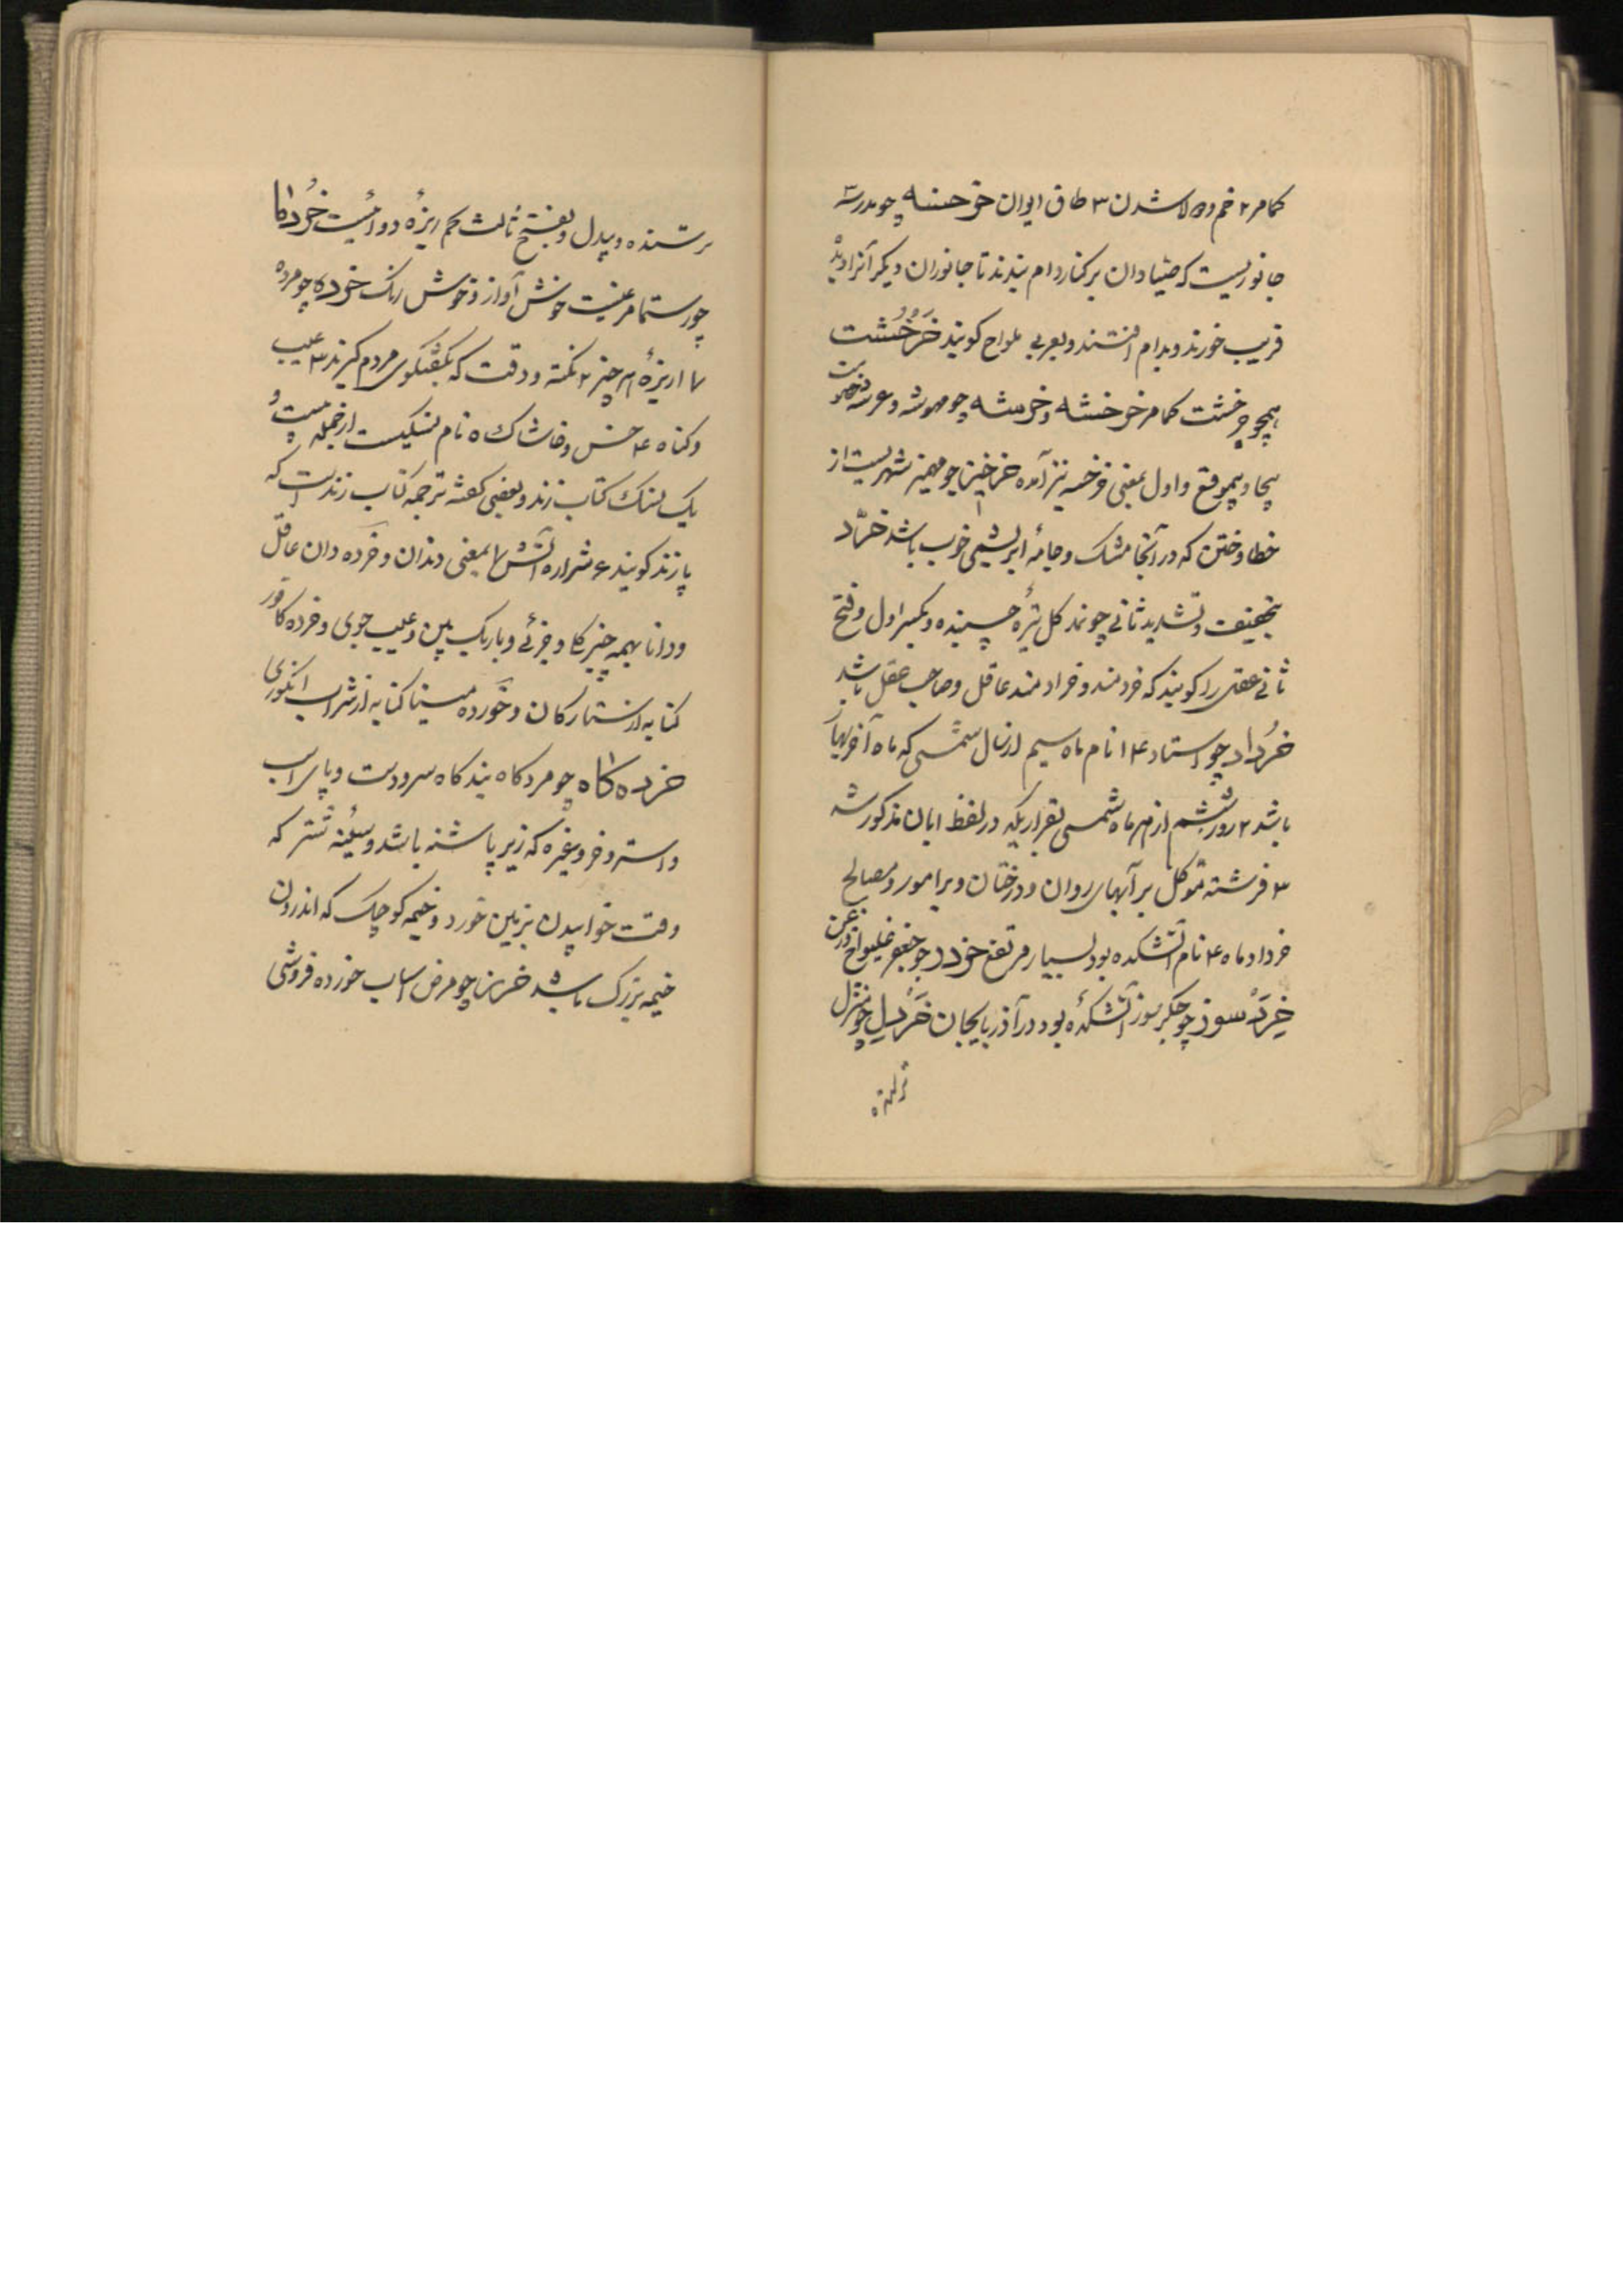 کمامر ۲ خم و دولا شدن ۳ طاق ایوان خرخسه چو مدرسه
جانوریست که صیادان بر کنار دام بندند تا جانوران دیگر آنرا دیده
فریب خورند و بدام افتند و بعربی ملواح کویند خرخشت
همچو چرخشت کمامر خرخشه و خرمشه چو مهوشه و عربشه
بیجا و بیموقع و اول بمعنی خرخسه نیز آمده خرخیز چو مهمیز شهریست از
خطا و ختن که در آنجا مشک و جامه ابریشمی خوب باشد خرد
بتخفیف و تشدید ثانی چو ند کل تیرهٔ چسپنده و بکسر اول و فتح
ثانی عقل را کویند که خردمند و خرادمند عاقل و صاحب عقل باشد
خرداد چو استاد ۴ ۱ نام ماه سیم از سال شمسی که ماه آخر بهار
باشد ۲ روز ششم از هر ماه شمسی بقراریکه در لفظ ابان مذکور شد
۳ فرشته موکل بر آبهای روان و درختان و بر امور و مصالح
خرداد ماه ۴ نام آتشکده بود بسیار مرتفع خردد چو جعفر غلیواج و زغن
خردسوز چو جگرسوز آتشکدهٔ بود در آذربایجان خردل چو منزل
ترسنده و بیدل و بفتح ثالث تخم ریزهٔ دوائیست خردکا
چو رستما مرغیست خوش آواز و خوش رنک خرده چو مرده
۷ ۱ ریزهٔ هر چیز ۲ نکته و دقت که بکفتکوی مردم کیرند ۳ عیب
و کناه ۴ خس و خاشاک ۵ نام نسکیست از جمله بیست و
یک نسک کتاب زند و بعضی کفته ترجمه کتاب زندست که
پازند کویند ۶ شراره آتش ۷ بمعنی دندان و خرده دان عاقل
و دانا بهمه چیز کلی و جزئی و باریک بین و عیب جوی و خرده کافور
کنایه از ستارکان و خورده مینا کنایه از شراب انکوری
خرده کاه چو مردکاه بندکاه سر و دست و پای اسب
و استر و خر و غیره که زیر پاشنه باشد و سینه شتر که
وقت خوابیدن بزمین خورد و خیمه کوچک که اندرون
خیمه بزرک باشد خرز چو مرض اسباب خورده فروشی